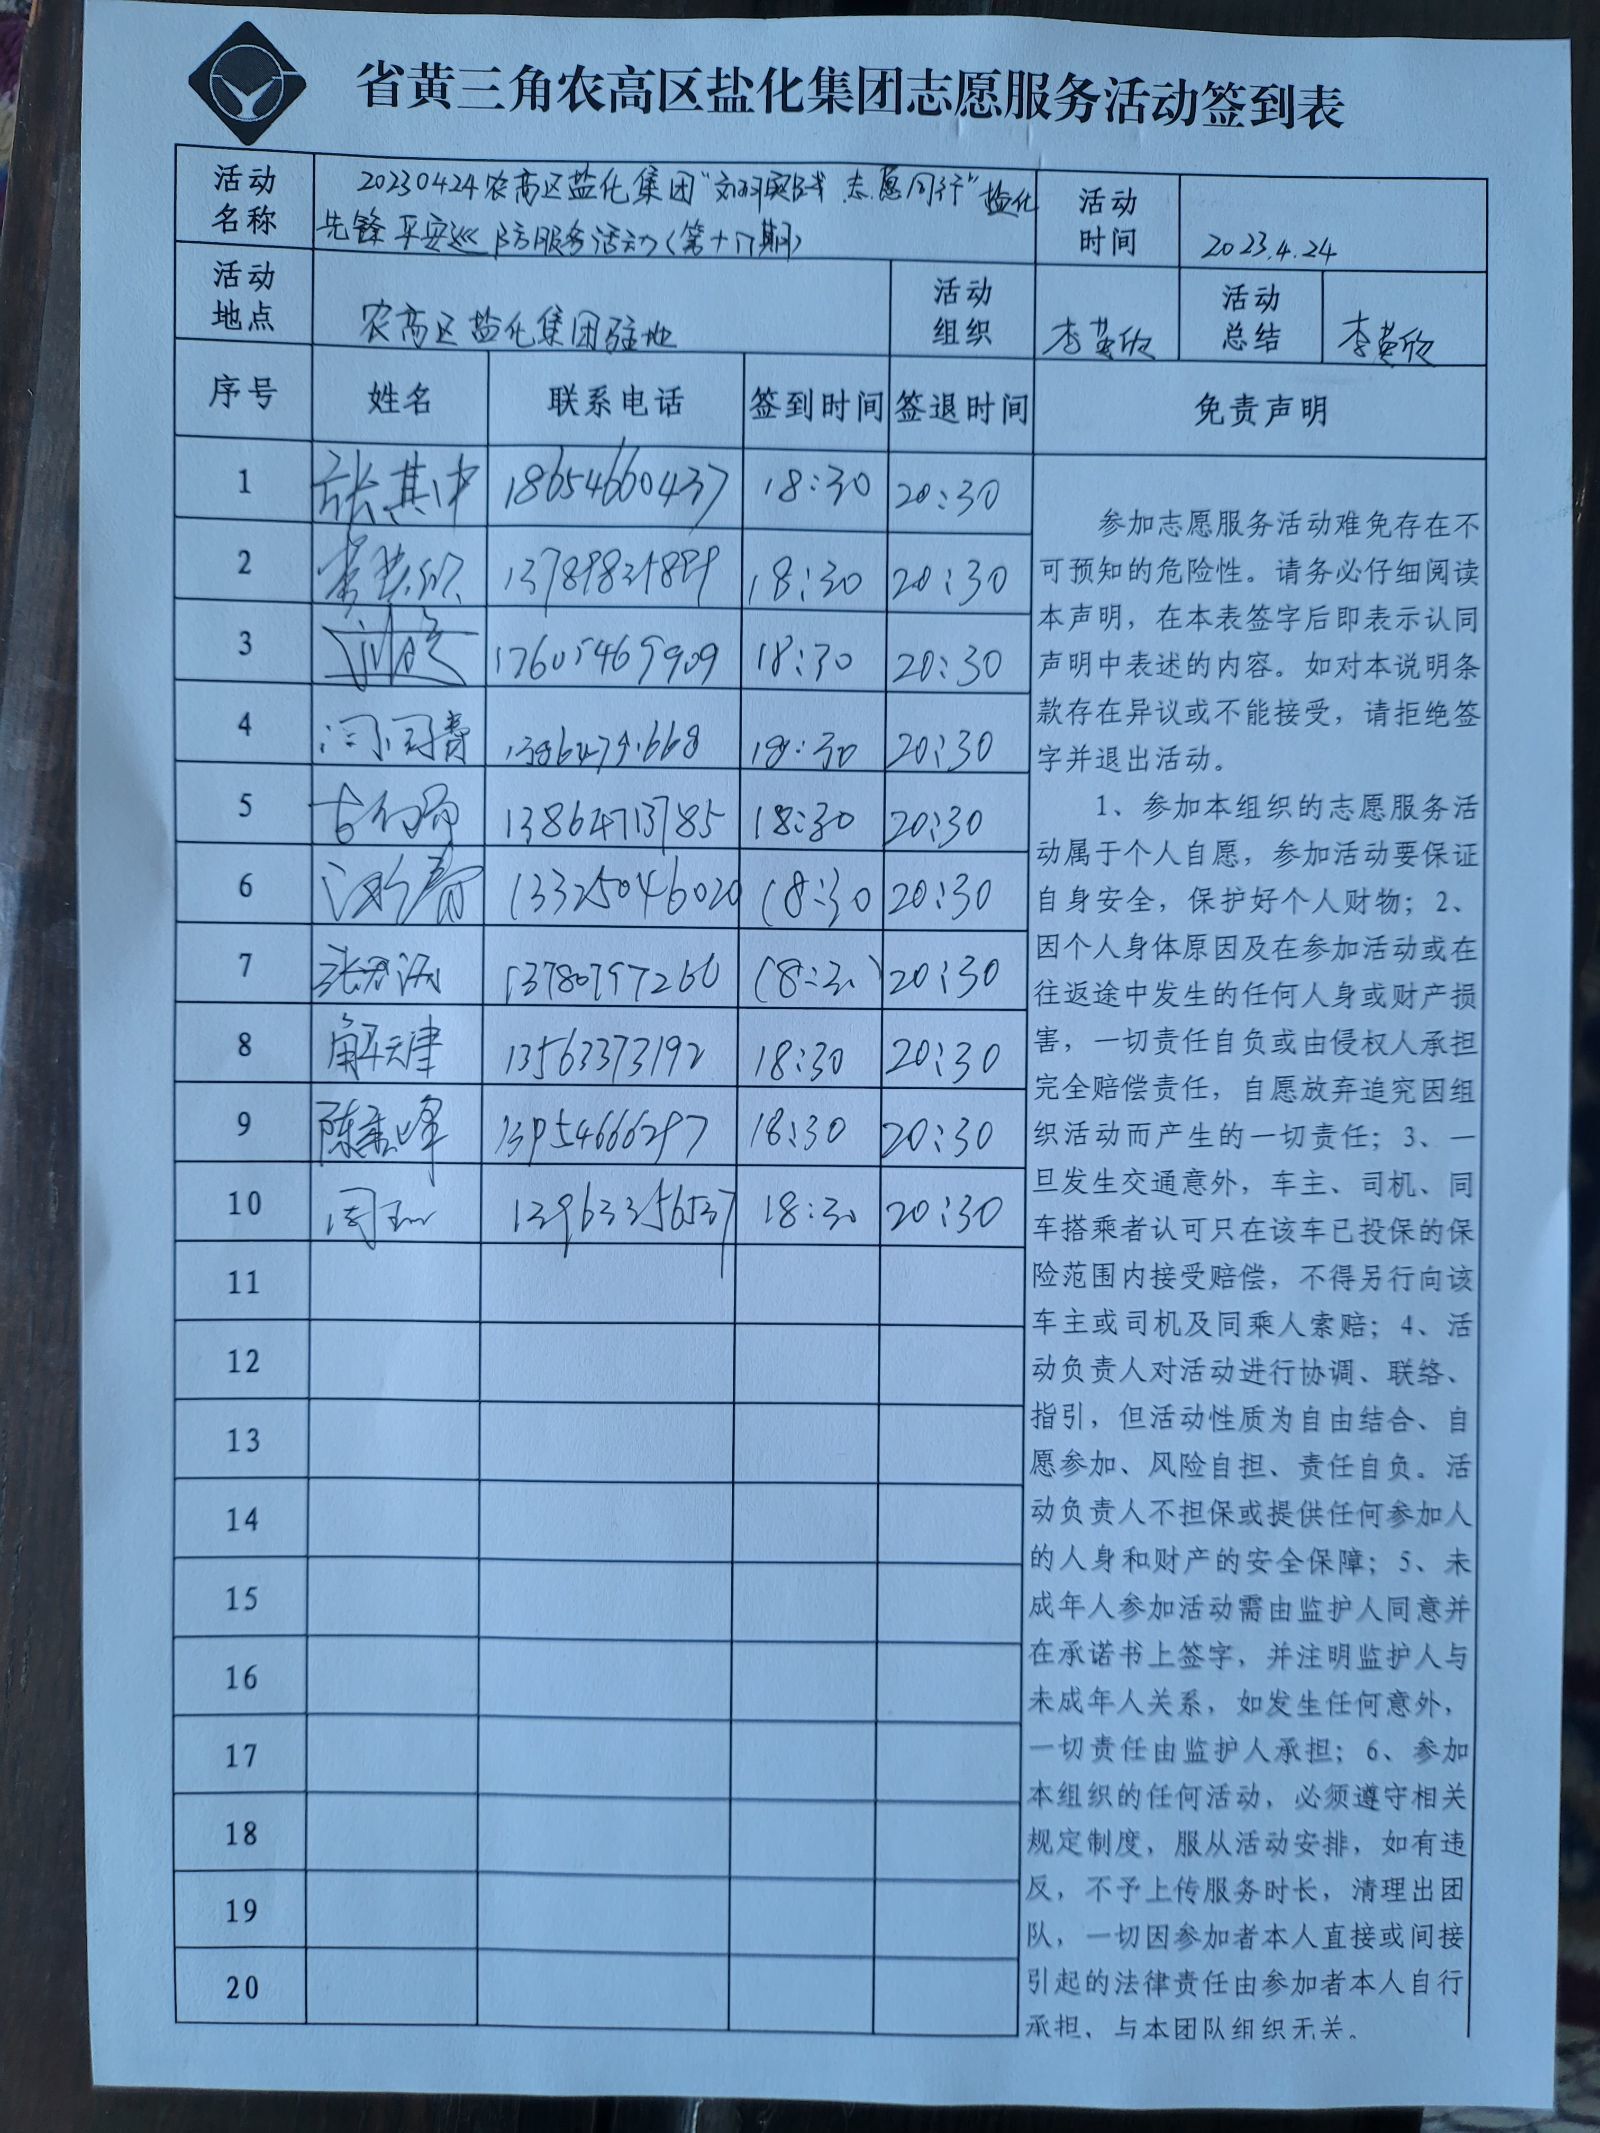 省黄三角农高区盐化集团志愿服务活动签到表
活动名称
20230424农高区盐化集团"文明实践 志愿同行"盐化
先锋平安巡防服务活动(第十八期)
活动时间
2023.4.24
活动地点
农高区盐化集团驻地
活动组织
李英欣
活动总结
李英欣
序号 姓名 联系电话 签到时间 签退时间 免责声明
1 张其中 18654660437 18:30 20:30
2 13789831899 18:30 20:30
3 17605469909 18:30 20:30
4 18:30 20:30
5 13864713785 18:30 20:30
6 13325046020 18:30 20:30
7 13780797260 18:30 20:30
8 解天津 13563373192 18:30 20:30
9 13954666297 18:30 20:30
10 13963356537 18:30 20:30
11
12
13
14
15
16
17
18
19
20
参加志愿服务活动难免存在不
可预知的危险性。请务必仔细阅读
本声明，在本表签字后即表示认同
声明中表述的内容。如对本说明条
款存在异议或不能接受，请拒绝签
字并退出活动。
1、参加本组织的志愿服务活
动属于个人自愿，参加活动要保证
自身安全，保护好个人财物；2、
因个人身体原因及在参加活动或在
往返途中发生的任何人身或财产损
害，一切责任自负或由侵权人承担
完全赔偿责任，自愿放弃追究因组
织活动而产生的一切责任；3、一
旦发生交通意外，车主、司机、同
车搭乘者认可只在该车已投保的保
险范围内接受赔偿，不得另行向该
车主或司机及同乘人索赔；4、活
动负责人对活动进行协调、联络、
指引，但活动性质为自由结合、自
愿参加、风险自担、责任自负。活
动负责人不担保或提供任何参加人
的人身和财产的安全保障；5、未
成年人参加活动需由监护人同意并
在承诺书上签字，并注明监护人与
未成年人关系，如发生任何意外，
一切责任由监护人承担；6、参加
本组织的任何活动，必须遵守相关
规定制度，服从活动安排，如有违
反，不予上传服务时长，清理出团
队，一切因参加者本人直接或间接
引起的法律责任由参加者本人自行
承担，与本团队组织无关。